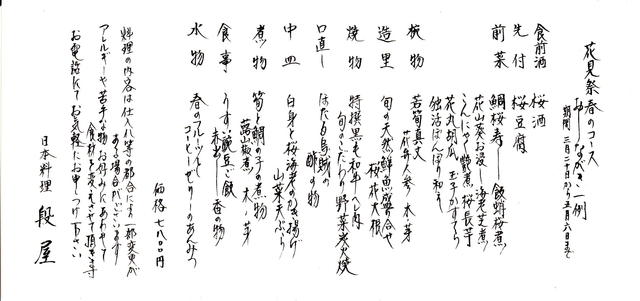 花見祭春のコース
おしながき一例
期間 三月二十日から五月六日まで
食前酒 桜酒
先付 桜豆腐
前菜 鯛桜寿し 飯蛸桜煮
花山葵お浸し 海老芝煮
こんにゃく艶煮 桜長芋
花丸胡瓜 玉子かすてら
独活ぽんぽり和え
椀物 若筍真丈
花弁人参 木ノ芽
造里 旬の天然鮮魚盛合せ
桜花大根
焼物 特撰黒毛和牛へレ肉
旬のこだわり野菜炭火焼
口直し ほたる烏賊の
酢の物
中皿 白身と桜海老のかき揚げ
山菜天ぷら
煮物 筍と鯛の子の煮物
蕗山椒煮 木ノ芽
食事 うすい豌豆ご飯
赤出し 香の物
水物 春のフルーツと
コーヒーゼリーのあんみつ
価格 七八〇〇円
料理の内容は仕入れ等の都合により一部変更が
ある場合がございます
アレルギーや苦手な物お好みにあわせて
食材を変えさせて頂きます
お電話にてお気軽にお申しつけ下さい
日本料理 段屋